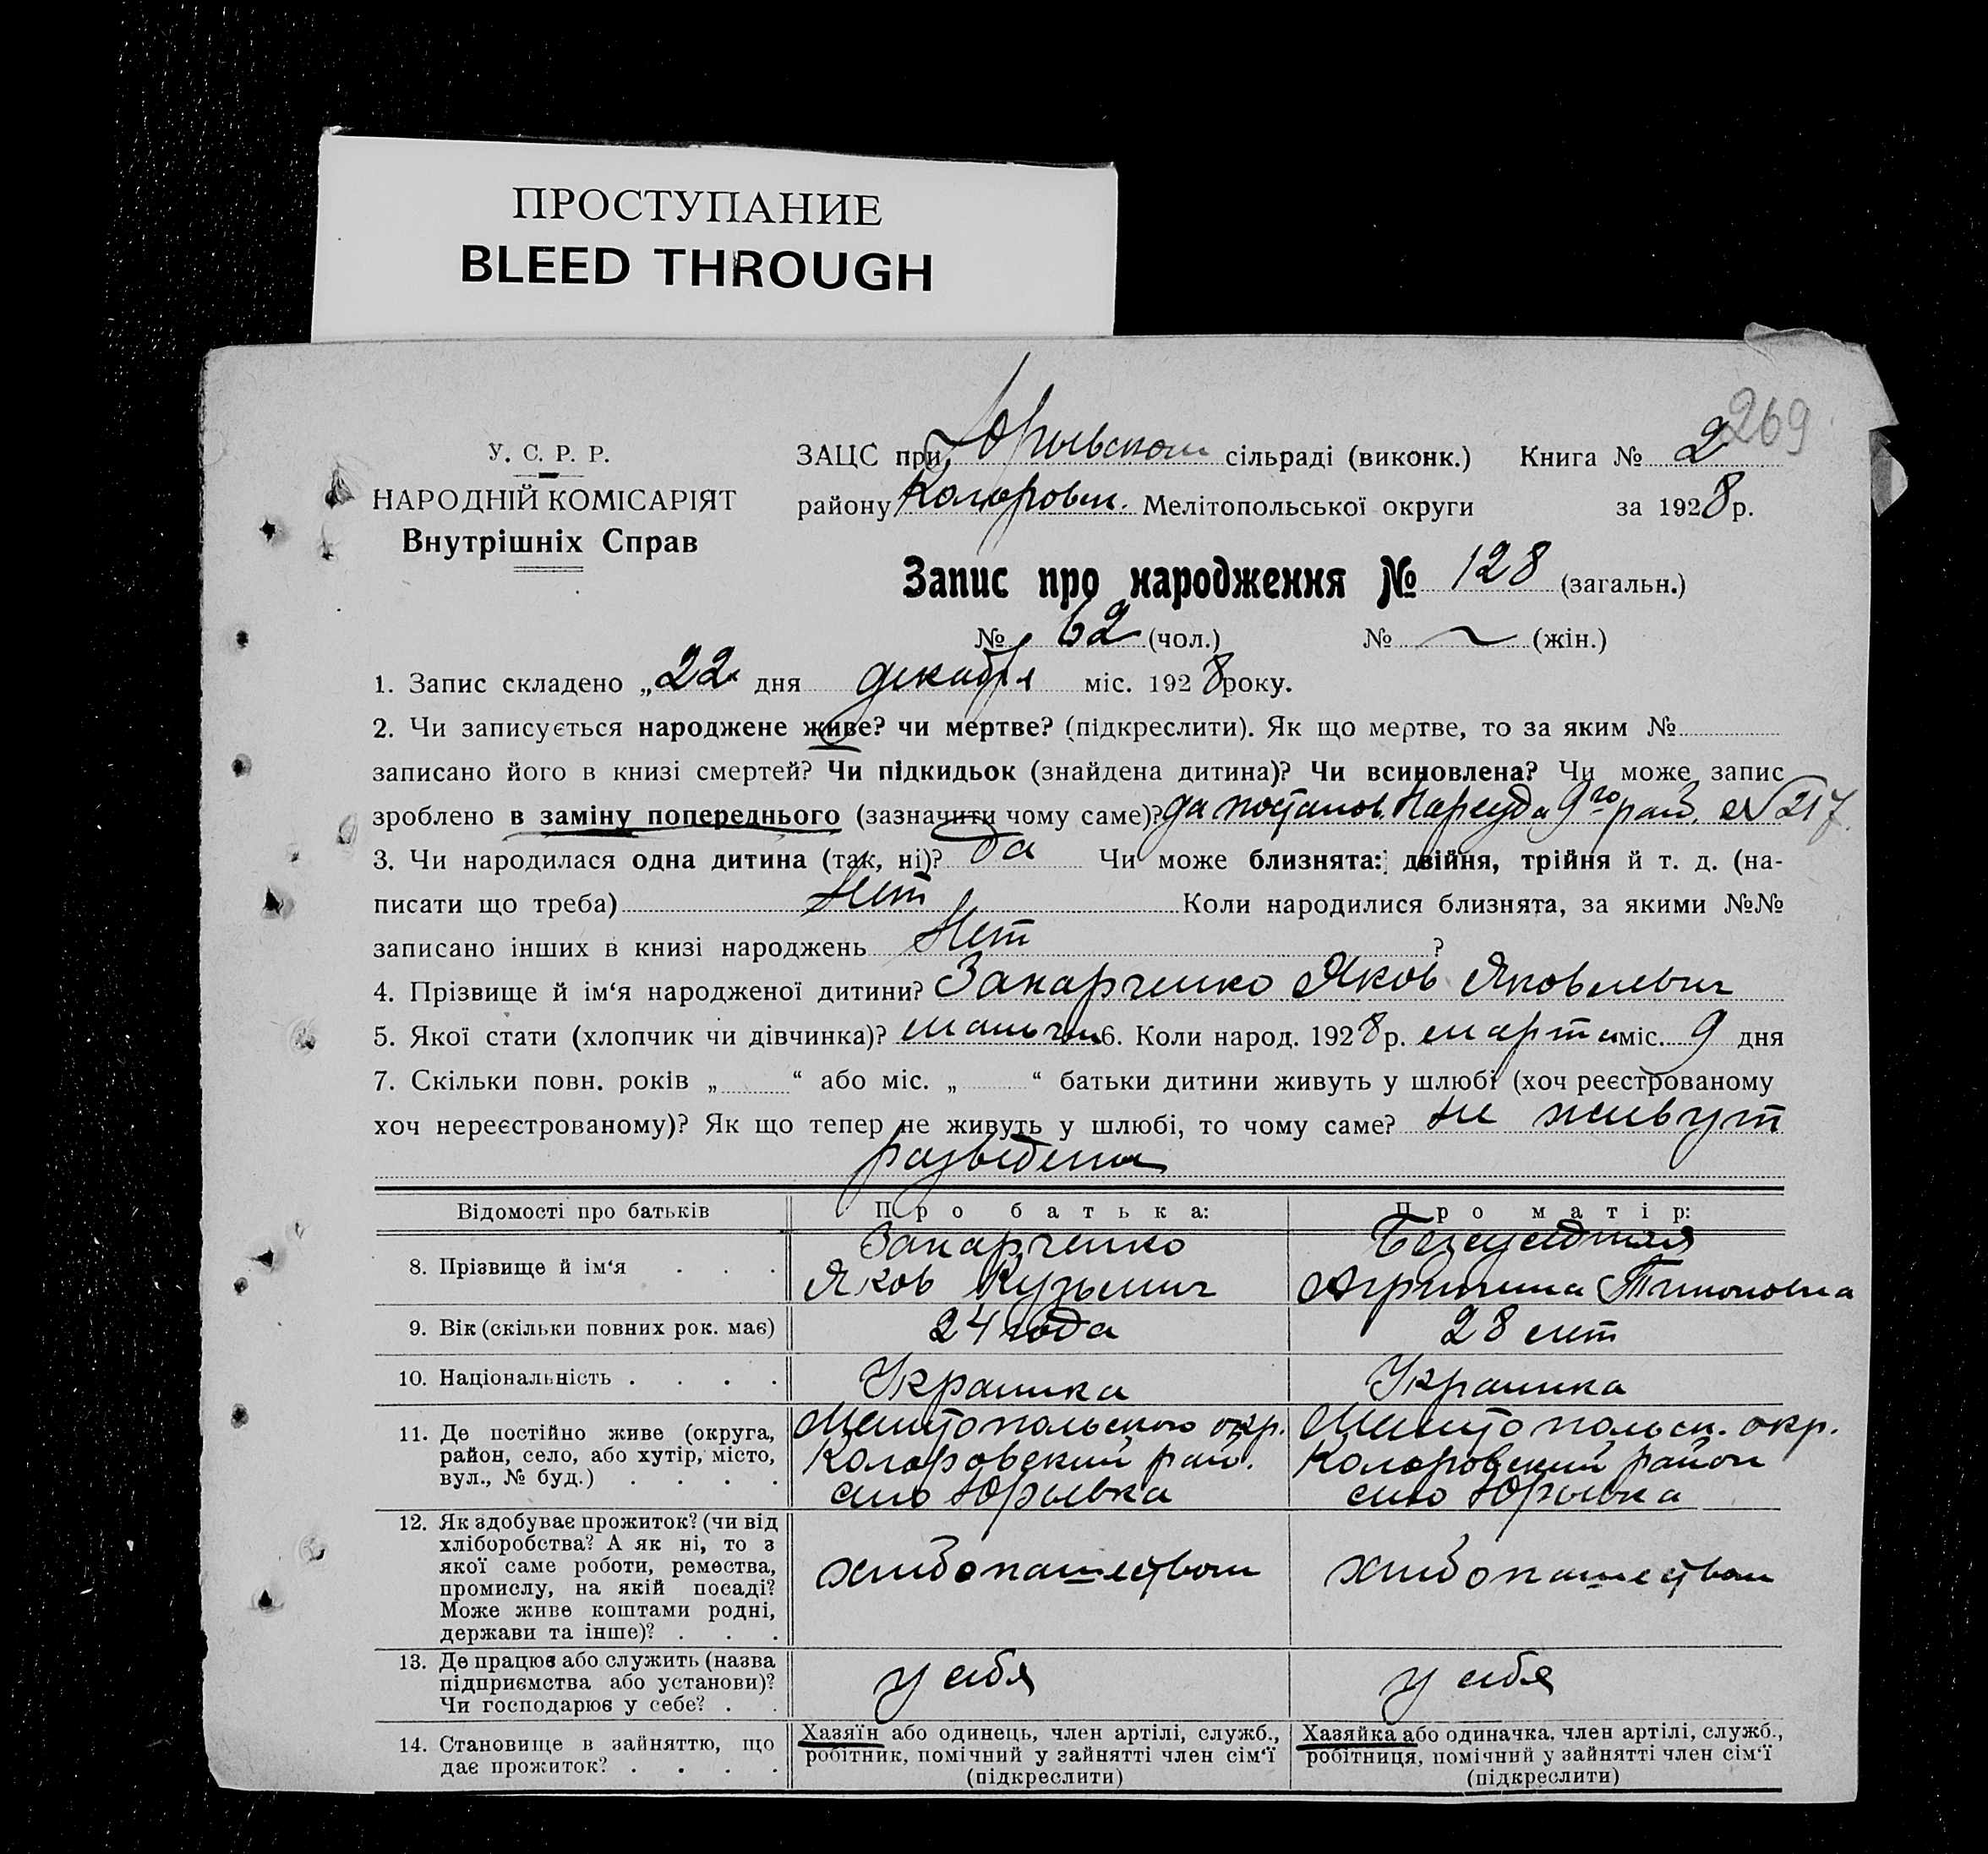 ПРОСТУПАНИЕ
BLEED THROUGH
269
У. С. Р. Р.
НАРОДНІЙ КОМІСАРІЯТ
Внутрішніх Справ
ЗАЦС при Юрьевском сільраді (виконк.) Книга № 2
району Коларовск. Мелітопольської округи за 1928 р.
Запис про народження № 128 (загальн.)
№ 62 (чол.) № — (жін.)
1. Запис складено „22 дня декабря міс. 1928 року.
2. Чи записується народжене живе? чи мертве? (підкреслити). Як що мертве, то за яким №
записано його в книзі смертей? Чи підкидьок (знайдена дитина)? Чи всиновлена? Чи може запис
зроблено в заміну попереднього (зазначити чому саме)? да постанов. Нарсуда 9го рай. № 217
3. Чи народилася одна дитина (так, ні)? да Чи може близнята: двійня, трійня й т. д. (на-
писати що треба) Нет Коли народилися близнята, за якими №№
записано інших в книзі народжень Нет ?
4. Прізвище й ім‘я народженої дитини? Захарченко Яков Яковлевич
5. Якої стати (хлопчик чи дівчинка)? мальчик 6. Коли народ. 1928 р. марта міс. 9 дня
7. Скільки повн. років „ “ або міс. „ “ батьки дитини живуть у шлюбі (хоч реєстрованому
хоч нереєстрованому)? Як що тепер не живуть у шлюбі, то чому саме? не живут
разведены
Відомості про батьків Про батька: Про матір:
8. Прізвище й ім‘я . . . Захарченко Яков Кузьмич
Агрипина Тихоновна
9. Вік (скільки повних рок. має) 24 года 28 лет
10. Національність . . . . Украинка Украинка
11. Де постійно живе (округа, район, село, або хутір, місто, вул., № буд.) . . . .
Мелитопольского окр. Коларовский рай. село Юрьевка
Мелитопольск. окр. Коларовский район село Юрьевка
12. Як здобуває прожиток? (чи від хліборобства? А як ні, то з якої саме роботи, ремества, промислу, на якій посаді? Може живе коштами родні, держави та інше)? . . .
хлебопашеством хлебопашеством
13. Де працює або служить (назва підприємства або установи)? Чи господарює у себе? . .
у себя у себя
14. Становище в зайняттю, що дає прожиток? . . . .
Хазяїн або одинець, член артілі, служб., робітник, помічний у зайнятті член сім‘ї (підкреслити)
Хазяйка або одиначка, член артілі, служб., робітниця, помічний у зайнятті член сім‘ї (підкреслити)